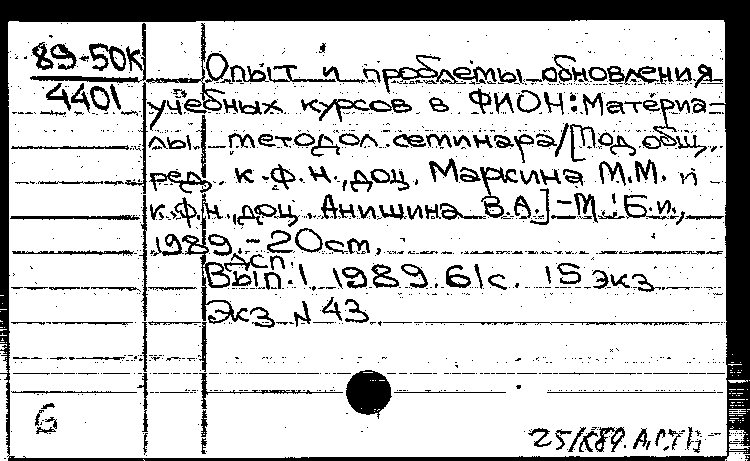 89-50К
4401
Опыт и проблемы обновления
учебных курсов в ФИОН: Материа-
лы методол. семинара/[Под общ.
ред. к.ф.н., доц. Маркина М.М. и
к.ф.н., доц. Анишина В.А.]-М.: Б.и.,
1989.-20cm.
ДСП.
Вып. 1. 1989. 61с. 15 экз
Экз N 43
6
25/К89.